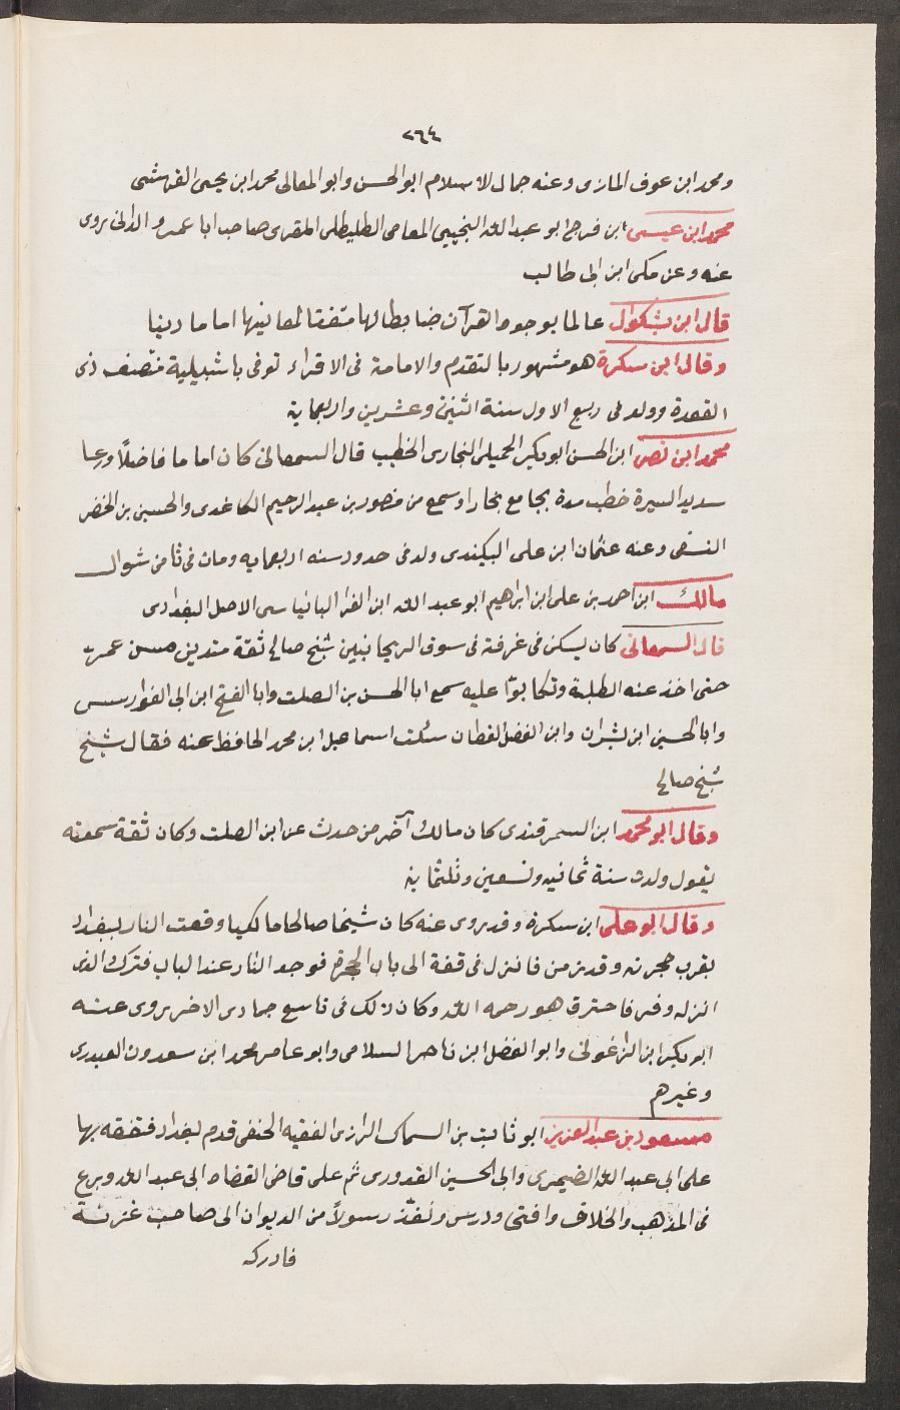 ٢٦٤
ومحمد ابن عوف المازنى وعنه جمال الاسلام ابو الحسن وابو المعالى محمد ابن يحيى القرشى
محمد ابن عيسى ابن فرج ابو عبد الله التجيبى المغامى الطليطلى المقرى صاحب ابا عمرو الدانى يروى
عنه وعن مكى ابن ابى طالب
قال ابن بشكوال عالما بوجوه القرآن ضابطا لها متقنا لمعانيها اماما دينا
وقال ابن سكرة هو مشهور بالتقدم والامامة فى الاقراء توفى باشبيلية منتصف ذى
القعدة وولد فى ربيع الاول سنة اثنين وعشرين واربعماية
محمد ابن نصر ابن الحسن ابو بكر الجميلى البخارى الخطيب قال السمعانى كان اماما فاضلاً ورعا
سديد السيرة خطب مدة بجامع بخارا وسمع من منصور بن عبد الرحيم الكاغدى والحسين بن الخضر
النسفى وعنه عثمان ابن على البيكندى ولد فى حدود سنه اربعمايه ومات فى ثامن شوال
مالك ابن احمد بن على ابن ابراهيم ابو عبد الله ابن الفرا البانياسى الاصل البغدادى
قال السمعانى كان يسكن فى غرفة فى سوق الريحانيين شيخ صالح ثقة متدين مسن عمر
حتى اخذ عنه الطلبة وتكابوا عليه سمع ابا الحسن بن الصلت وابا الفتح ابن ابى الفوارس
وابا الحسين ابن بشران وابن الفضل القطان سئلت اسماعيل ابن محمد الحافظ عنه فقال شيخ
شيخ صالح
وقال ابو محمد ابن السمرقندى كان مالك آخر من حدث عن ابن الصلت وكان ثقة سمعته
يقول ولدت سنة ثمانيه وتسعين وثلثماية
وقال ابو على ابن سكرة وقد روى عنه كان شيخا صالحا مالكيا وقعت النار ببغداد
بقرب حجرته وقد زمن فانزل فى قفة الى باب الحجرة فوجد النار عند الباب فتركه الذى
انزله وفر فاحترق هو رحمه الله وكان ذلك فى تاسع جمادى الاخر يروى عنه
ابو بكر ابن الزاغونى وابو الفضل ابن ناصر السلامى وابو عامر محمد ابن سعدون العبدرى
وغيرهم
مسعود بن عبد العزيز ابو ثابت بن السماك الرازى الفقيه الحنفى قدم بغداد فتفقه بها
على ابى عبد الله الضيمرى وابى الحسين القدورى ثم على قاضى القضاه ابى عبد الله وبرع
فى المذهب والخلاف وافتى ودرس ونفذ رسولاً من الديوان الى صاحب غزنة
فادركه